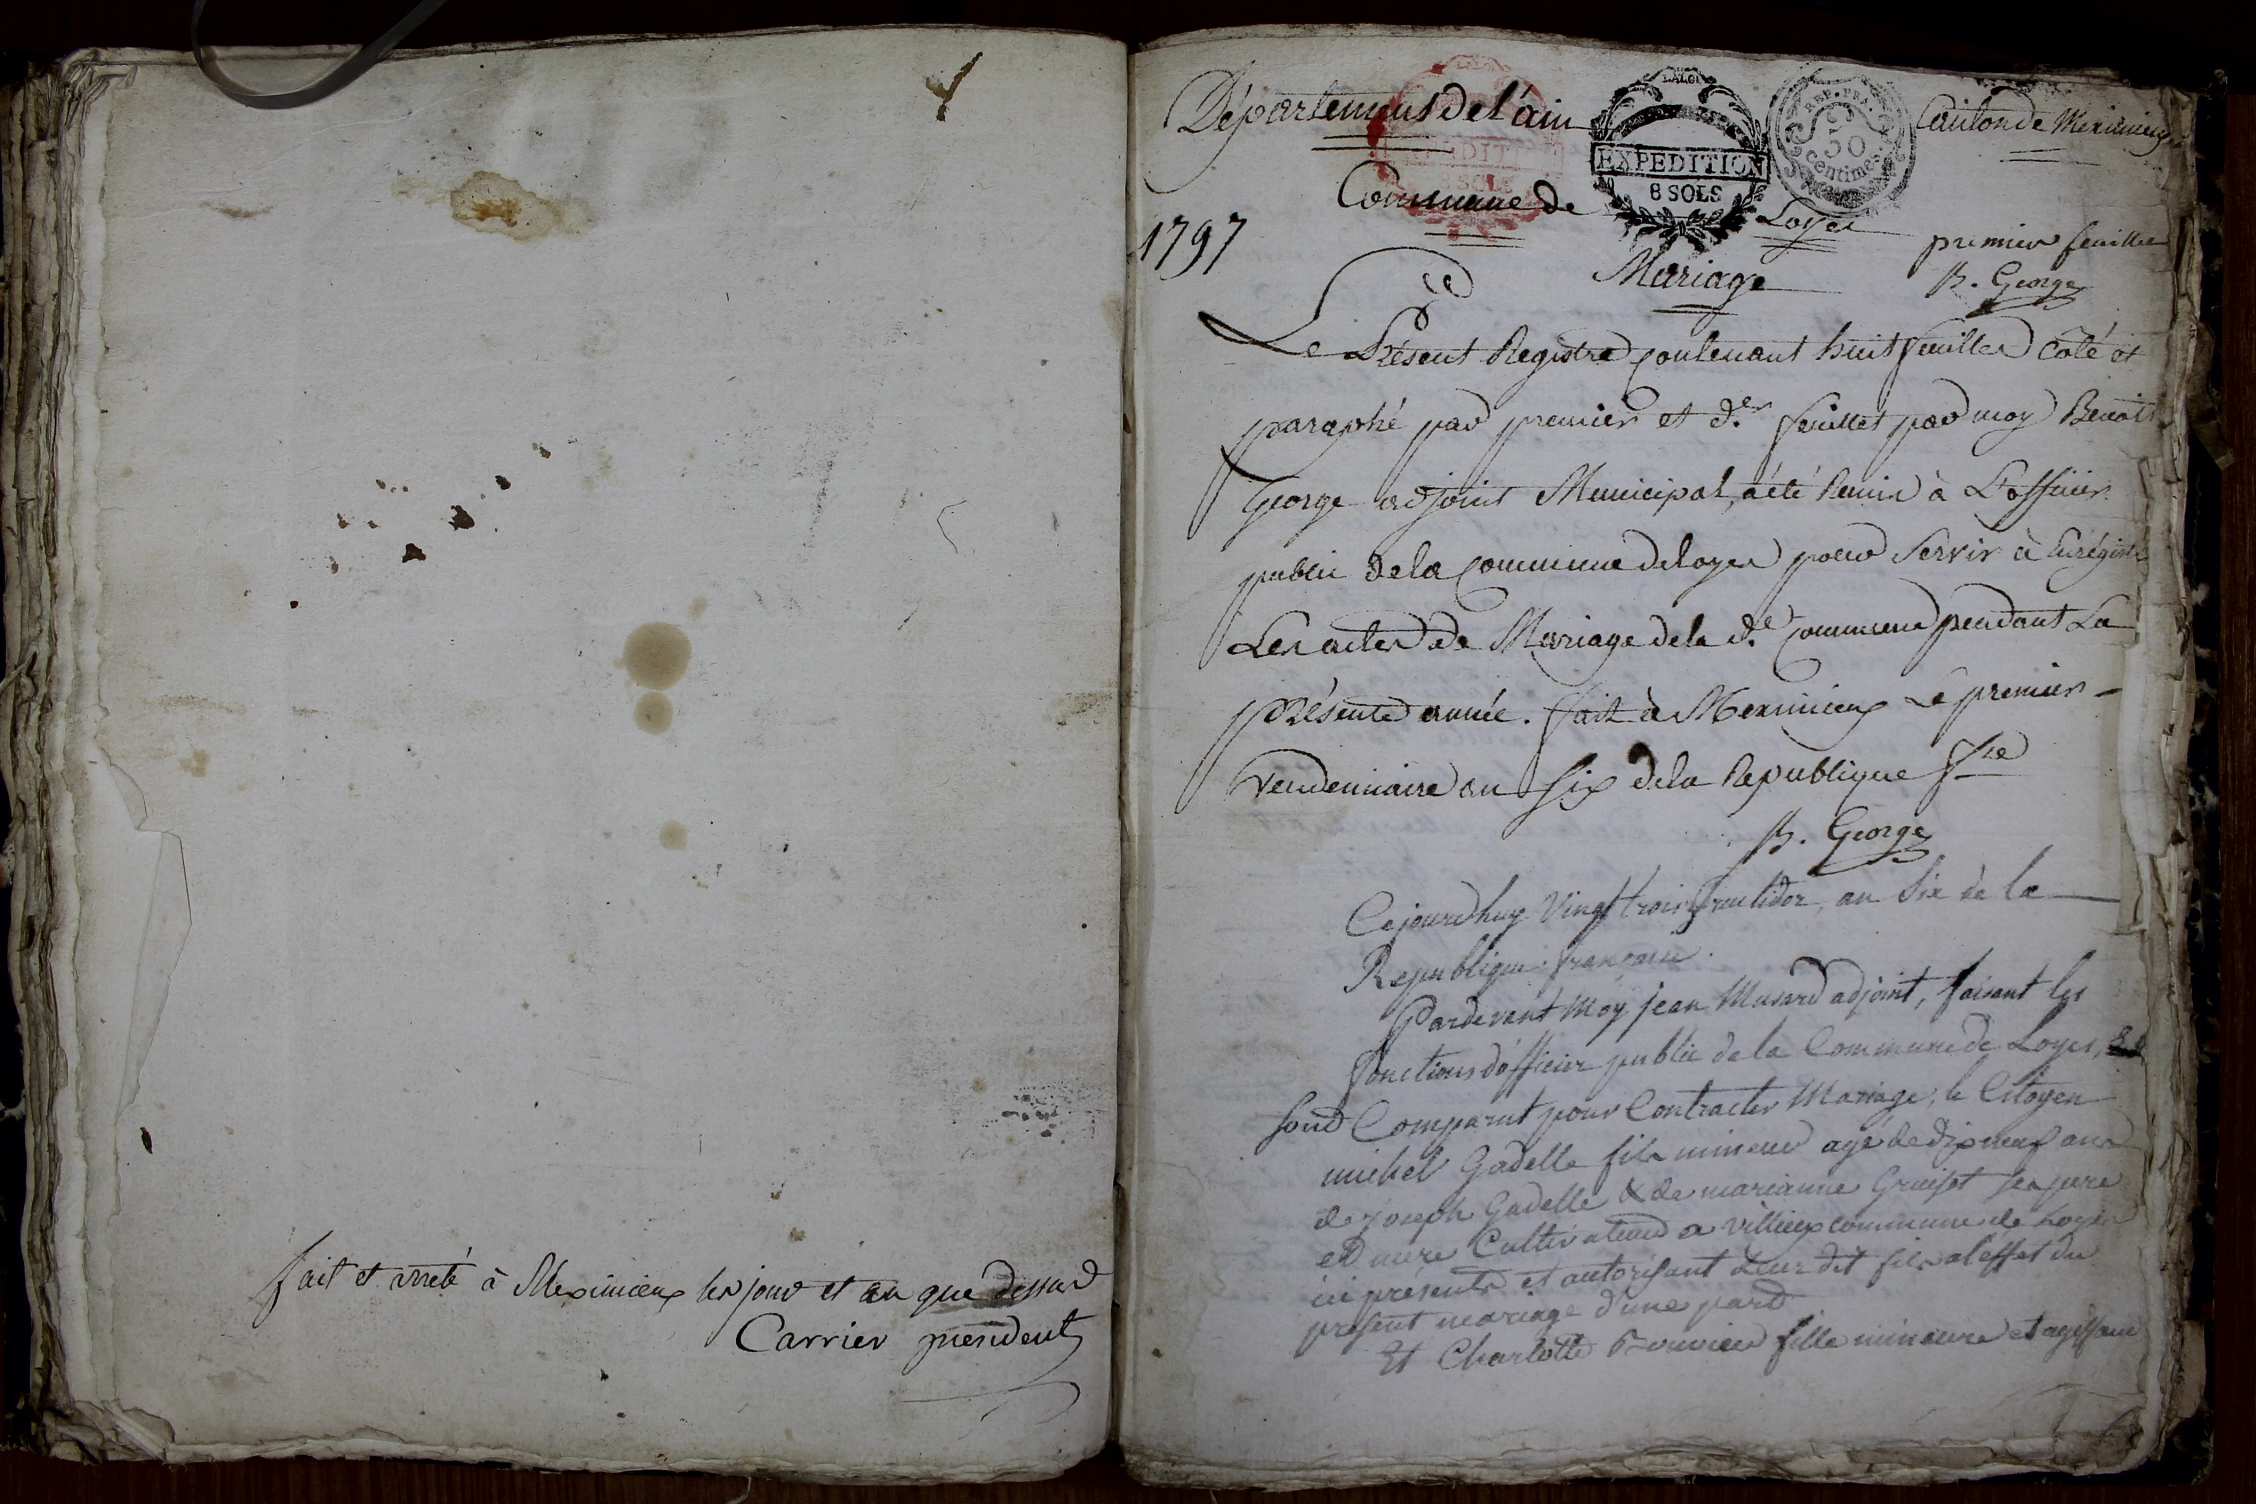 fait et arreté à Meximieux les jour et an que dessus
Carrier president
Département de l'ain
LALOI
EXPEDITION
8 SOLS
REP. FRA.
50
centimes
Canton de Meximieux
Commune de Loyes
1797
premier feuillet
B. George
Mariage
Le Présent Registre contenant huit feuilles Coté et
paraphé par premier et d.er feuillet par moy Benoit
George adjoint Municipal, a été Remis à L'officier
public de la commune de loyes pour Servir à Enregist
Les actes de Mariage de la d.e commune pendant La
présente année. fait à Meximieux Le premier
Vendemiaire an Six de la Republique f.se
B. George
Cejourd'huy Vingt trois fructidor, an Six de la
Republique française.
Pardevant Moy jean Musard adjoint, faisant les
fonctions d'officier public de la Commune de Loyes,
sont Comparut pour Contracter Mariage, le Citoyen
michel Gadelle fils mineur agé de dix neuf ans
de joseph Gadelle & de marianne Gruiset ses pere
et mere Cultivateurs a Villieux commune de Loyes
ici presents et autorisant leur dit fils a l'effet du
present mariage d'une part
Et Charlotte fille mineure et agissant